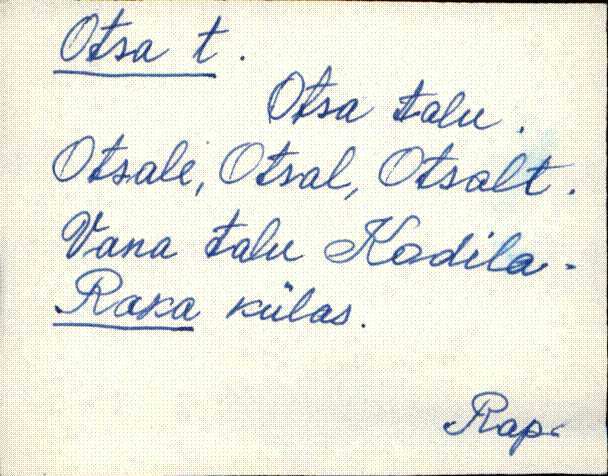 Otsa t.
Otsa talu.
Otsale, Otsal, Otsalt.
Vana talu Kadila-
Raka külas.
Rap.